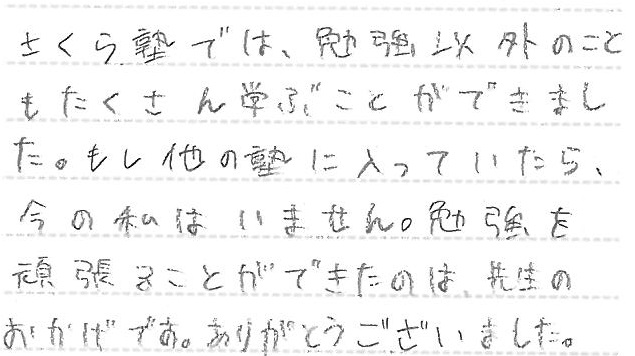 さくら塾では、勉強以外のこと
もたくさん学ぶことができまし
た。もし他の塾に入っていたら、
今の私はいません。勉強を
頑張ることができたのは、先生の
おかげです。ありがとうございました。